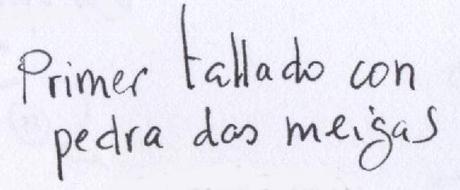 Primer tallado con
pedra das meigas